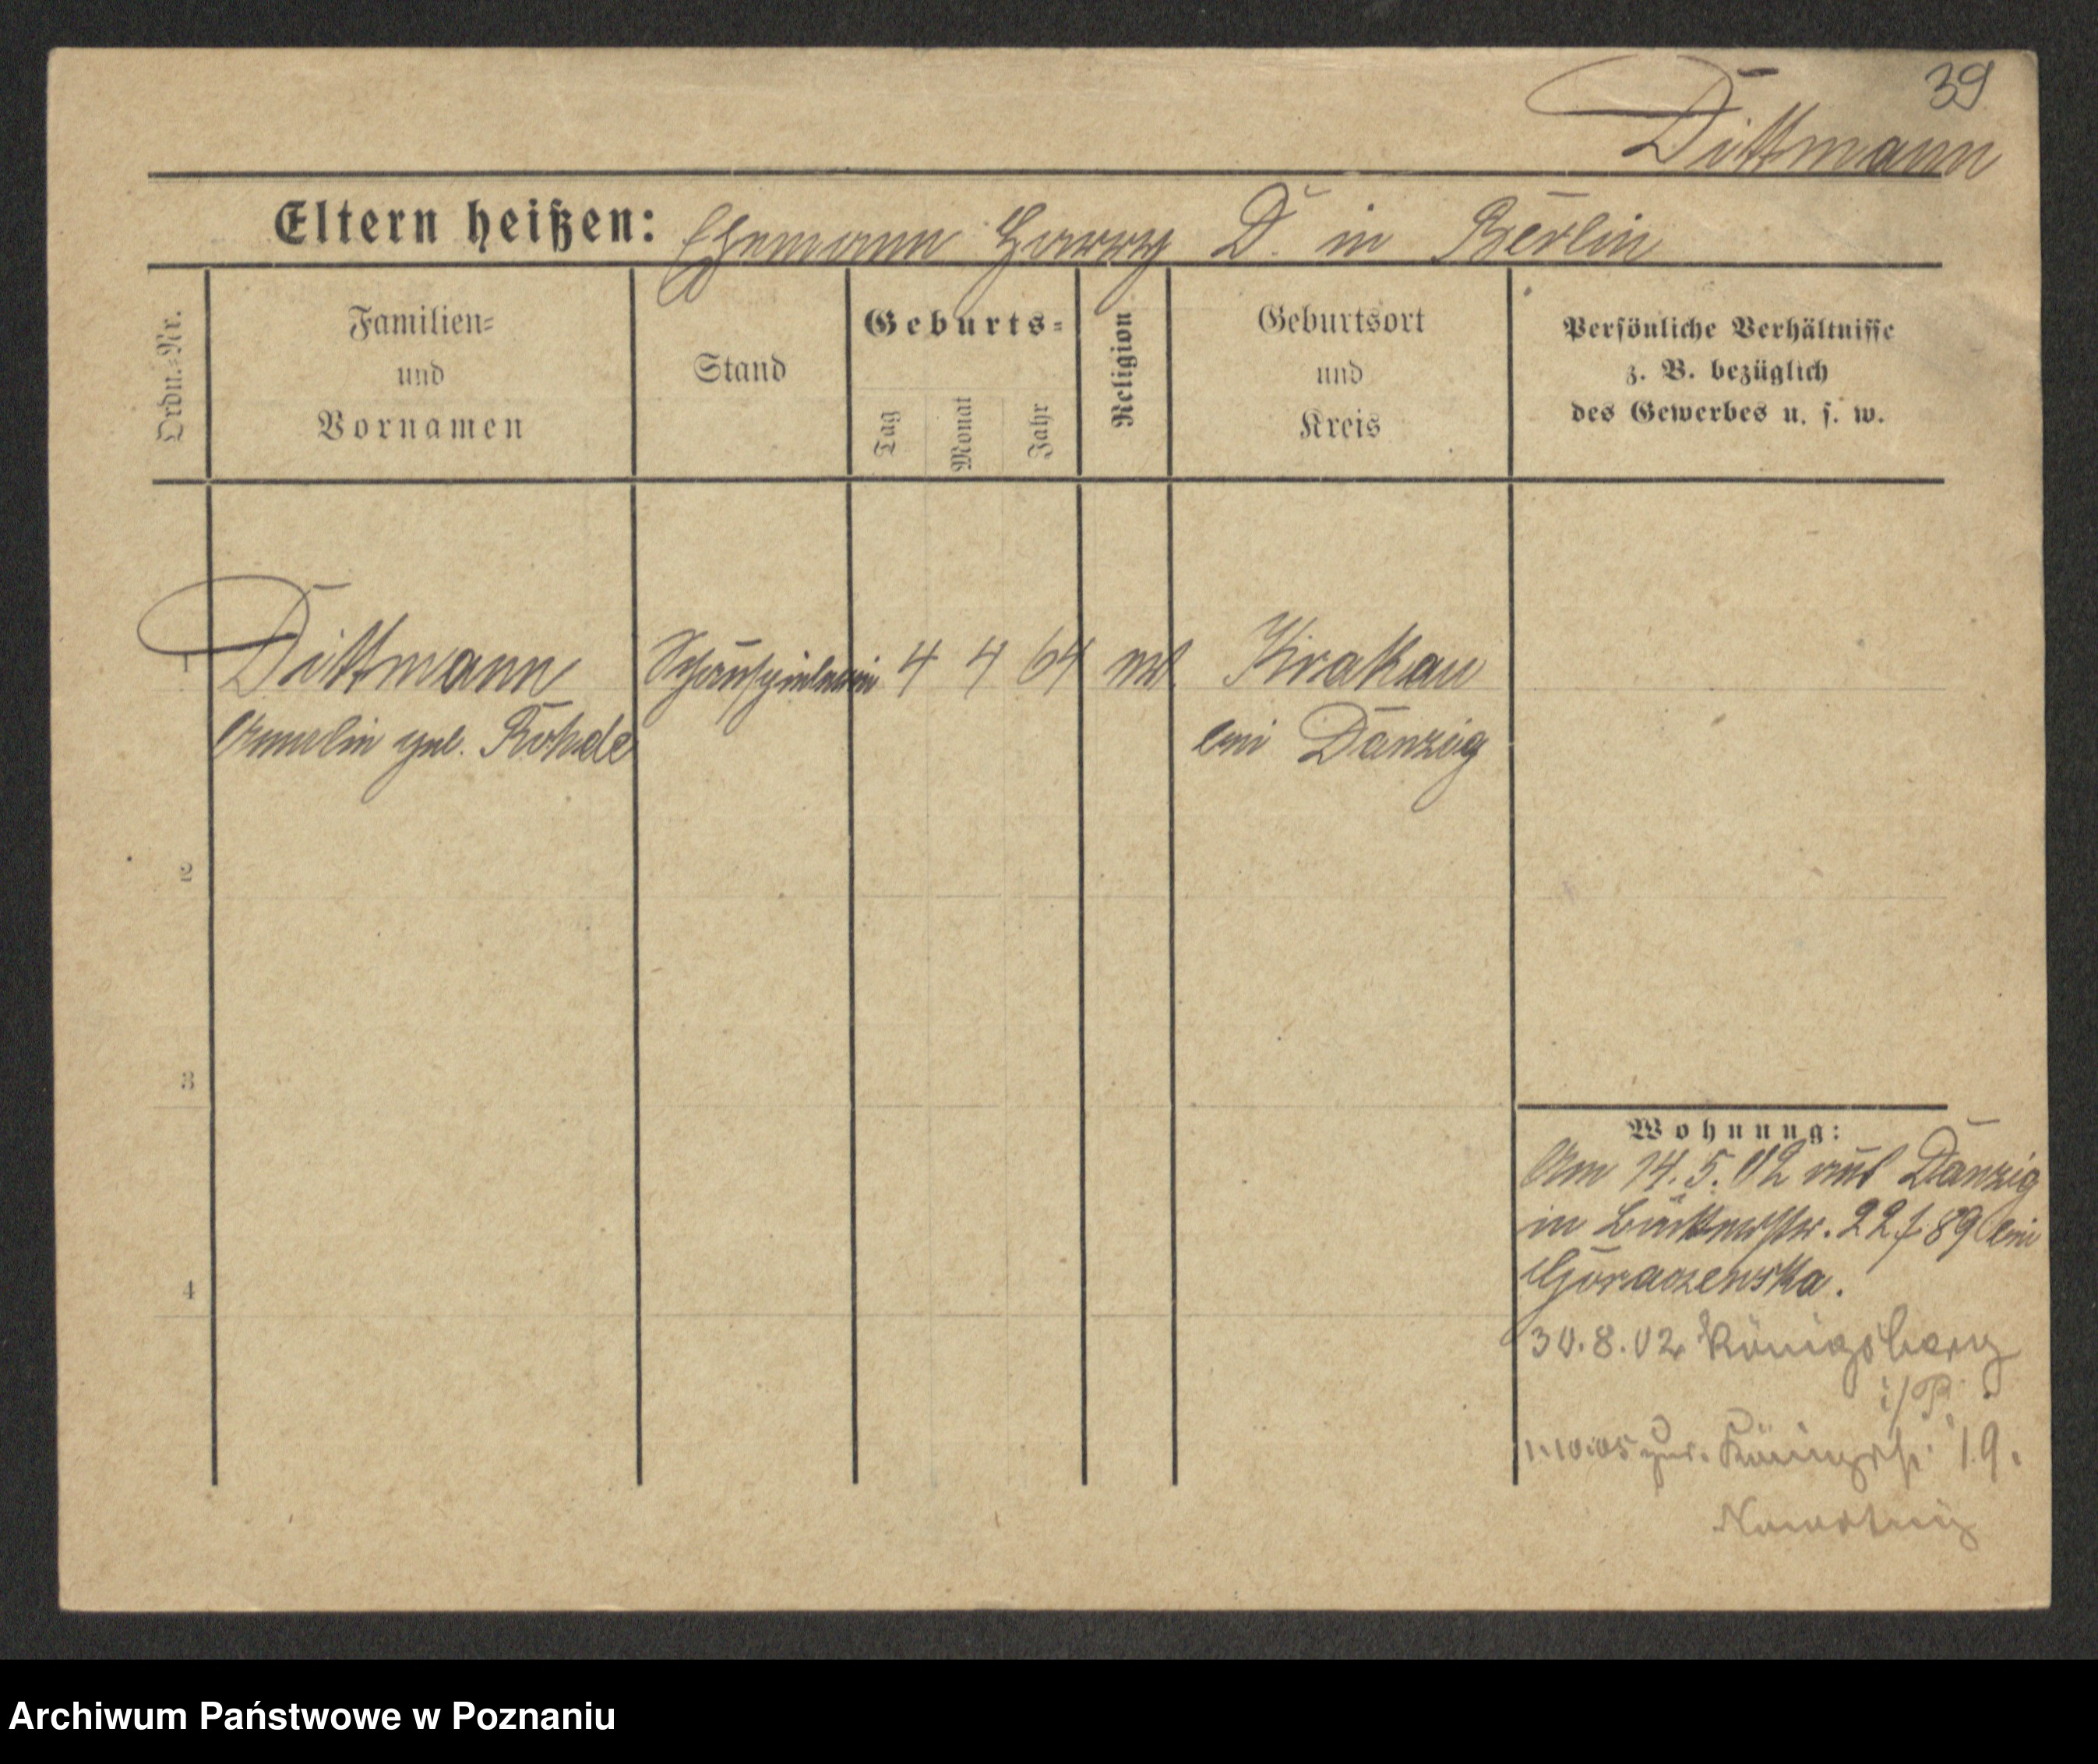 39
Dittmann
Eltern heißen: Ehemann Harry D. in Berlin
Ordn.=Nr.
Familien=
und
Vornamen
Stand
Geburts=
Tag
Monat
Jahr
Religion
Geburtsort
und
Kreis
Persönliche Verhältnisse
z. B. bezüglich
des Gewerbes u. s. w.
1 Dittmann Schauspielerin 4 4 64 Krakau
geb. Rohde bei Danzig
2
3
4
Wohnung:
Am 14.5.02 aus Danzig
in 22 f. 89 bei
Goraczewska.
30.8.02 Königsberg
i/P.
1.10.05 19.
Archiwum Państwowe w Poznaniu